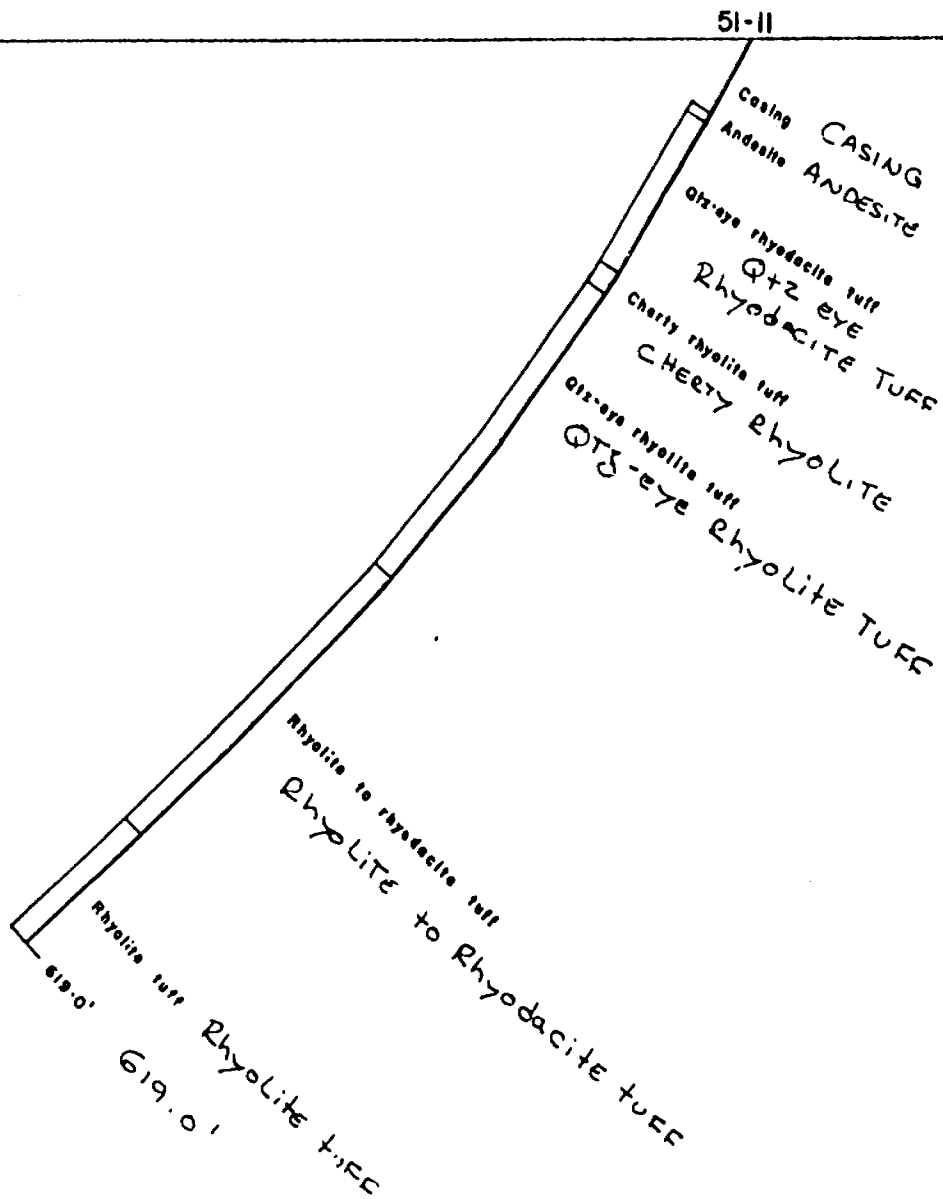 51-11
Casing
CASING
Andesite
ANDESITE
Qtz-eye rhyodacite tuff
Qtz EYE
RhyodaCITE TUFF
Cherty rhyolite tuff
CHERTY RhyoLITE
Qtz-eye rhyolite tuff
QTz-eye RhyoLitE TUFF
Rhyolite to rhyodacite tuff
RhyoLiTE to Rhyodacite tuFF
Rhyolite tuff
RhyoLite tuFF
619.0'
619.0'